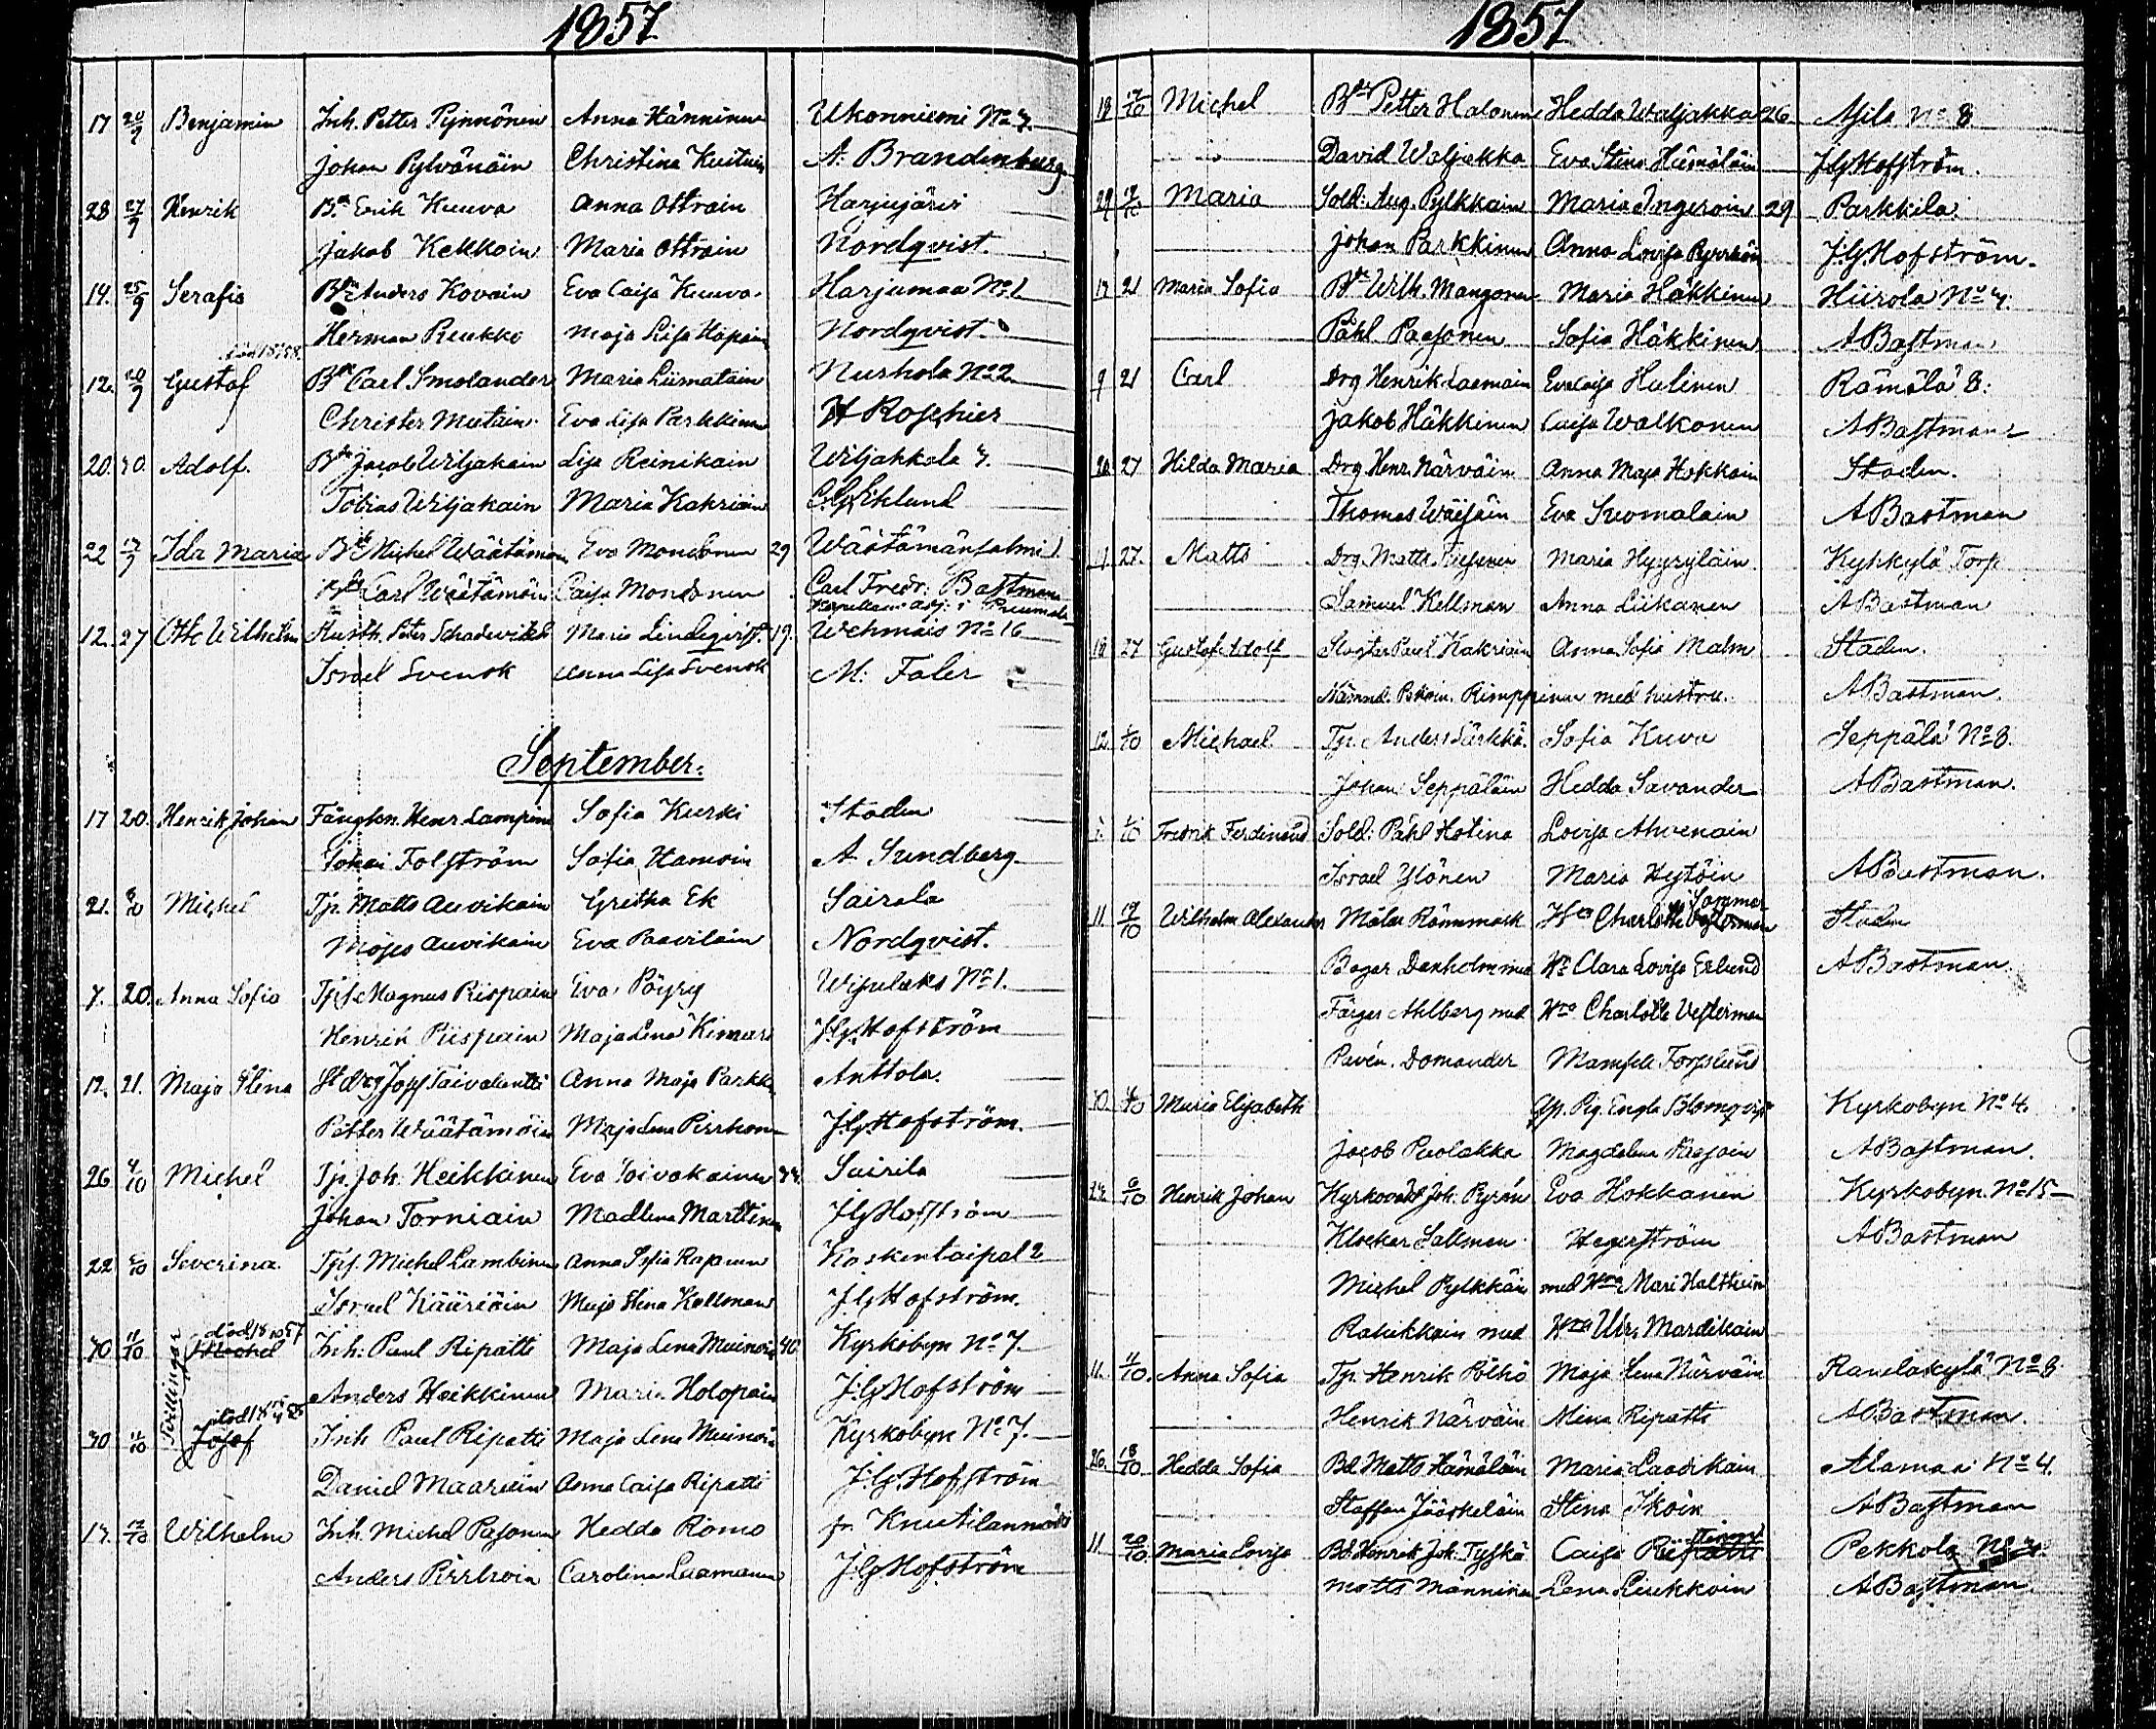 1857
17 20/9 Benjamin Inh. Petter Pynnönen Anna Hänninen Ukonniemi No 7.
Johan Pylvänäin Christina Kuituin A. Brandenburg
28 27/9 Henrik Bn Erik Kuuva Anna Ottrain Harjujärvi
Jakob Kekkoin Maria Ottrain Nordqvist.
14. 25/9 Serafia Bdn Anders Kovain Eva Caisa Kuuva. Harjumaa No 1
Herman Reukko Maja Lisa Hapain Nordqvist.
12. 20/9 Gustaf Bdn Carl Smolander Maria Liimatain Nurhola No 2
Christer Mutain Eva Lisa Parkkinen H Roschier
20. 30. Adolf. Bdn Jacob Wiljakain Lisa Reinikain Wiljakkala 7.
Tobias Wiljakain Maria Kakriain C.G. Eklund
22 Ida Maria Bd Michel Wäätämöin Eva Mononen 29 Wäätämänsalmi 1
Carl Wäätämöin Caisa Mononen Carl Fredr: Bastman
Kapellans adj: i Puumala
12. 27 Otto Wilhelm Peter Schadewitsch Maria Lindqvist. 19. Wehmais No 16
Israel Svensk Anna Lisa Svensk M: Faler
September.
17 20. Henrik Johan Fångkn. Henr. Lampin Sofia Kurki Staden
Johan Folström Sofia Hamoin A Sundberg
21. Michel Tp. Matts Auvikain Gretha Ek Sairala
Moses Auvikain Eva Paavilain Nordqvist.
7. 20. Anna Sofia Magnus Piispain Eva Pöyry Wipulaks No 1.
Henrik Piispain Maja Lena Kimari J.G. Hofström
12. 21. Maja Stina Josef Taivalantti Anna Maja Parkki Anttola.
Petter Wäätämöin Maja Lena Pirrhonen J.G. Hofström.
26 4/10 Michel Tp. Joh. Heikkinen Eva Toivakainen Sairila
Johan Torniain Madlena Marttinen J.G. Hofström
22 Severina. Michel Lambinen Anna Sofia Kapanen Koskentaipal 2
Israel Kääriäin Maja Stina Kellman J.G. Hofström.
Tvillingar
död 18 10 57
30 11/10 Michel Inh: Paul Ripatti Maja Lena Muinoin 40 Kyrkobyn No 7.
Anders Heikkinen Maria Holopain J.G. Hofström
30 11/10 Josef Inh Paul Ripatti Maja Lena Muinoin Kyrkobyn No 7.
Daniel Maariain Anna Caisa Ripatti J.G. Hofström
12/10 Wilhelm Inh. Michel Pasonen Hedda Romo
Anders Pirrhoin Carolina Laamanen J.G. Hofström
1857
18 Michel Bdn Petter Halonen Hedda Waljakka 26 Asila No 8
David Waljakka Eva Stina Hämäläin J.G. Hofström.
Maria Sold: Aug. Pylkkäin Maria Ingeroin 29 Parkkila.
Johan Parkkinen Anna Lovisa Pyrrhöin J.G. Hofström.
21 Maria Sofia Bdn Wilh. Mangonen Maria Häkkinen Hiirola No 7.
Påhl Pasonen Sofia Häkkinen A Bastman
9 21 Carl Drg Henrik Laamain Eva Caisa Hulinen Rämälä 8.
Jakob Häkkinen Caisa Walkonen A Bastman
27 Hilda Maria Drg. Henr. Närväin Anna Maja Hokkain Staden.
Thomas Wäisäin Eva Suomalain A Bastman
27. Matts Drg. Matts Maria Hyyryläin Kyhkylä Torp
Samuel Kellman Anna Liikanen A Bastman
27 Gustaf Adolf Paul Kakriain Anna Sofia Malm Staden.
Rimppinen med hustru. A Bastman.
12 Michael Tp. Anders Särkkä Sofia Kuva Seppälä No 8.
Johan Seppäläin Hedda Savander A Bastman.
Fredrik Ferdinand Sold: Påhl Hotina Lovisa Ahvenain
Israel Ylönen Maria Hytöin A Bastman.
11. 19/10 Wilhelm Alexander Målar Römmark Hru Charlotte Staden
Danholm med Hu Clara Lovisa Erlund A Bastman.
Färgar Ahlberg med Hru Charlotte Vesterman
Domander Mamsell Forsslund
Maria Elisabeth Pig. Engla Blomqvist Kyrkobyn No 4.
Jacob Puolakka Magdalena A Bastman.
6/10 Henrik Johan Joh. Pyrän Eva Hokkanen Kyrkobyn. No 15
Klockar Sallmen Hegerström A Bastman
Michel Pylkkäin med Hru Mari
Rahikkain med Hru Ulr. Mardikain
11. 11/10. Anna Sofia Tp. Henrik Pölhö Maja Lena Närväin Rantakylä No 8
Henrik Närväin Mina Ripatti A Bastman.
26. 18/10 Hedda Sofia Bd. Matts Hämäläin Maria Laadikain Alamaa No 4.
Staffan Jääskeläin Stina Ikoin A Bastman
11 20/10 Maria Lovisa Bd. Henrik Joh. Tyskä Caisa Pekkola
Matts Manninen Lena Liukkoin A Bastman.